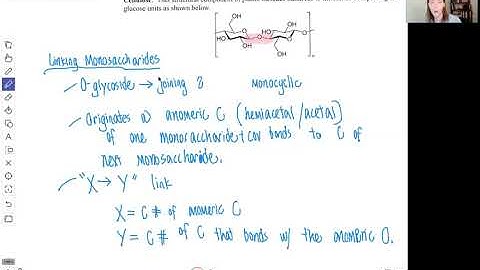 glucose units as shown below
HO
OH
HO
OH
OH
HO
OH
n
Linking Monosaccharides
O-glycoside → joining 2 monocyclic
Originates @ anomeric C (hemiacetal/acetal)
of one monosaccharide + cov bonds to C of
next monosaccharide.
"X → Y" link
X = C # of anomeric C
Y = C # of C that bonds w/ the anomeric O.